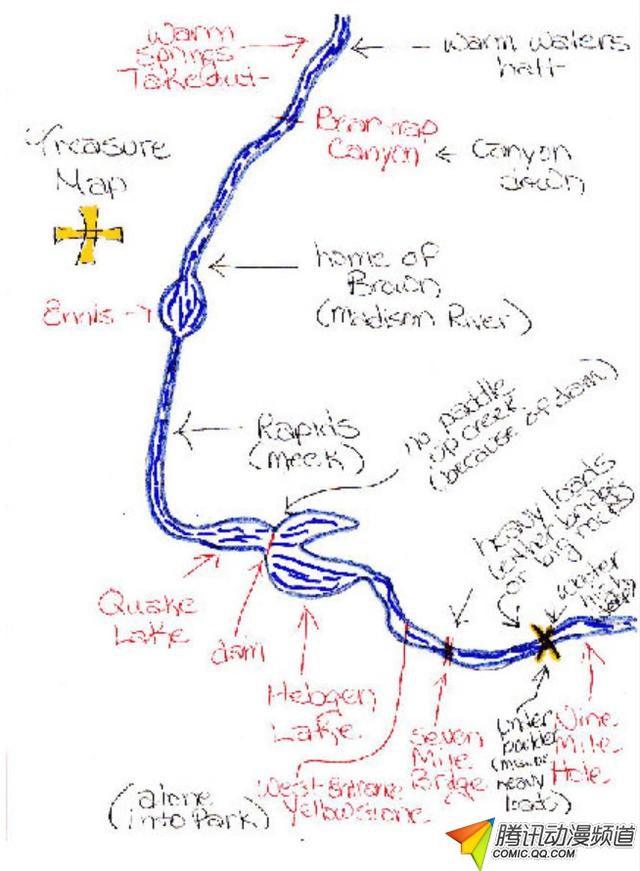 Warm
Springs
Takeout
warm waters
halt
Beartrap
Canyon
Canyon
down
Treasure
Map
home of
Brown
(Madison River)
Ennis
Rapids
(meek)
no paddle
up creek
(because of dam)
heavy loads
(either bridge
or big rocks
water
high
Quake
Lake
dam
Hebgen
Lake
Seven
Mile
Bridge
Nine
Mile
Hole
heavy
loads)
West Entrance
Yellowstone
(alone
into Park)
腾讯动漫频道
COMIC.QQ.COM